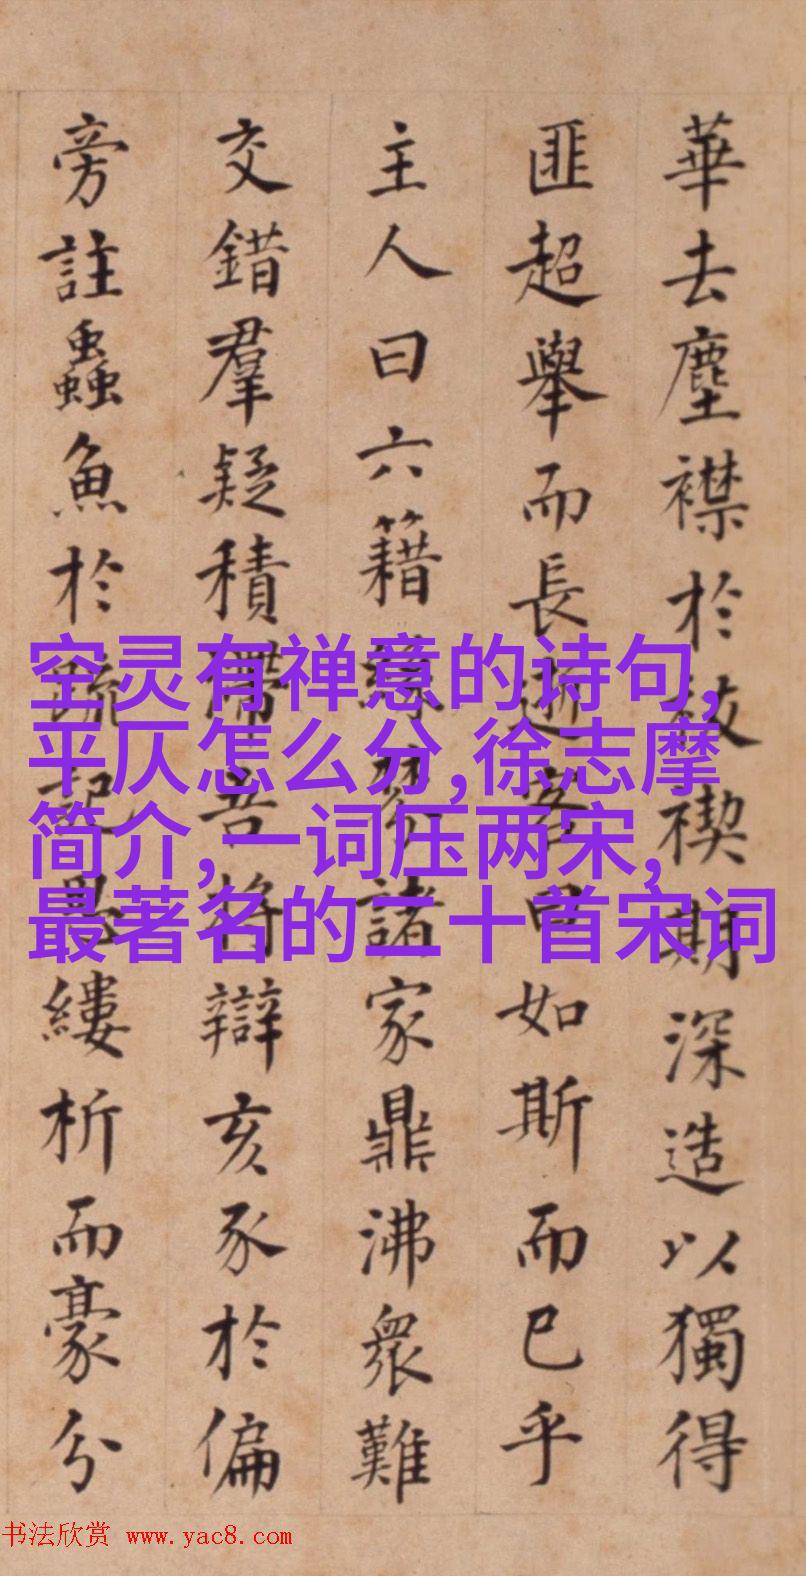 華去塵襟於禊期深造以獨得
匪超舉而長逝客曰如斯而已乎
主人曰六籍棼諸家鼎沸眾難
交錯羣疑積滯吾將辯亥豕於偏
旁註蟲魚於疏記縷析而豪分
空灵有禅意的诗句,
平仄怎么分,徐志摩
简介,一词压两宋,
最著名的二十首宋词
书法欣赏 www.yac8.com